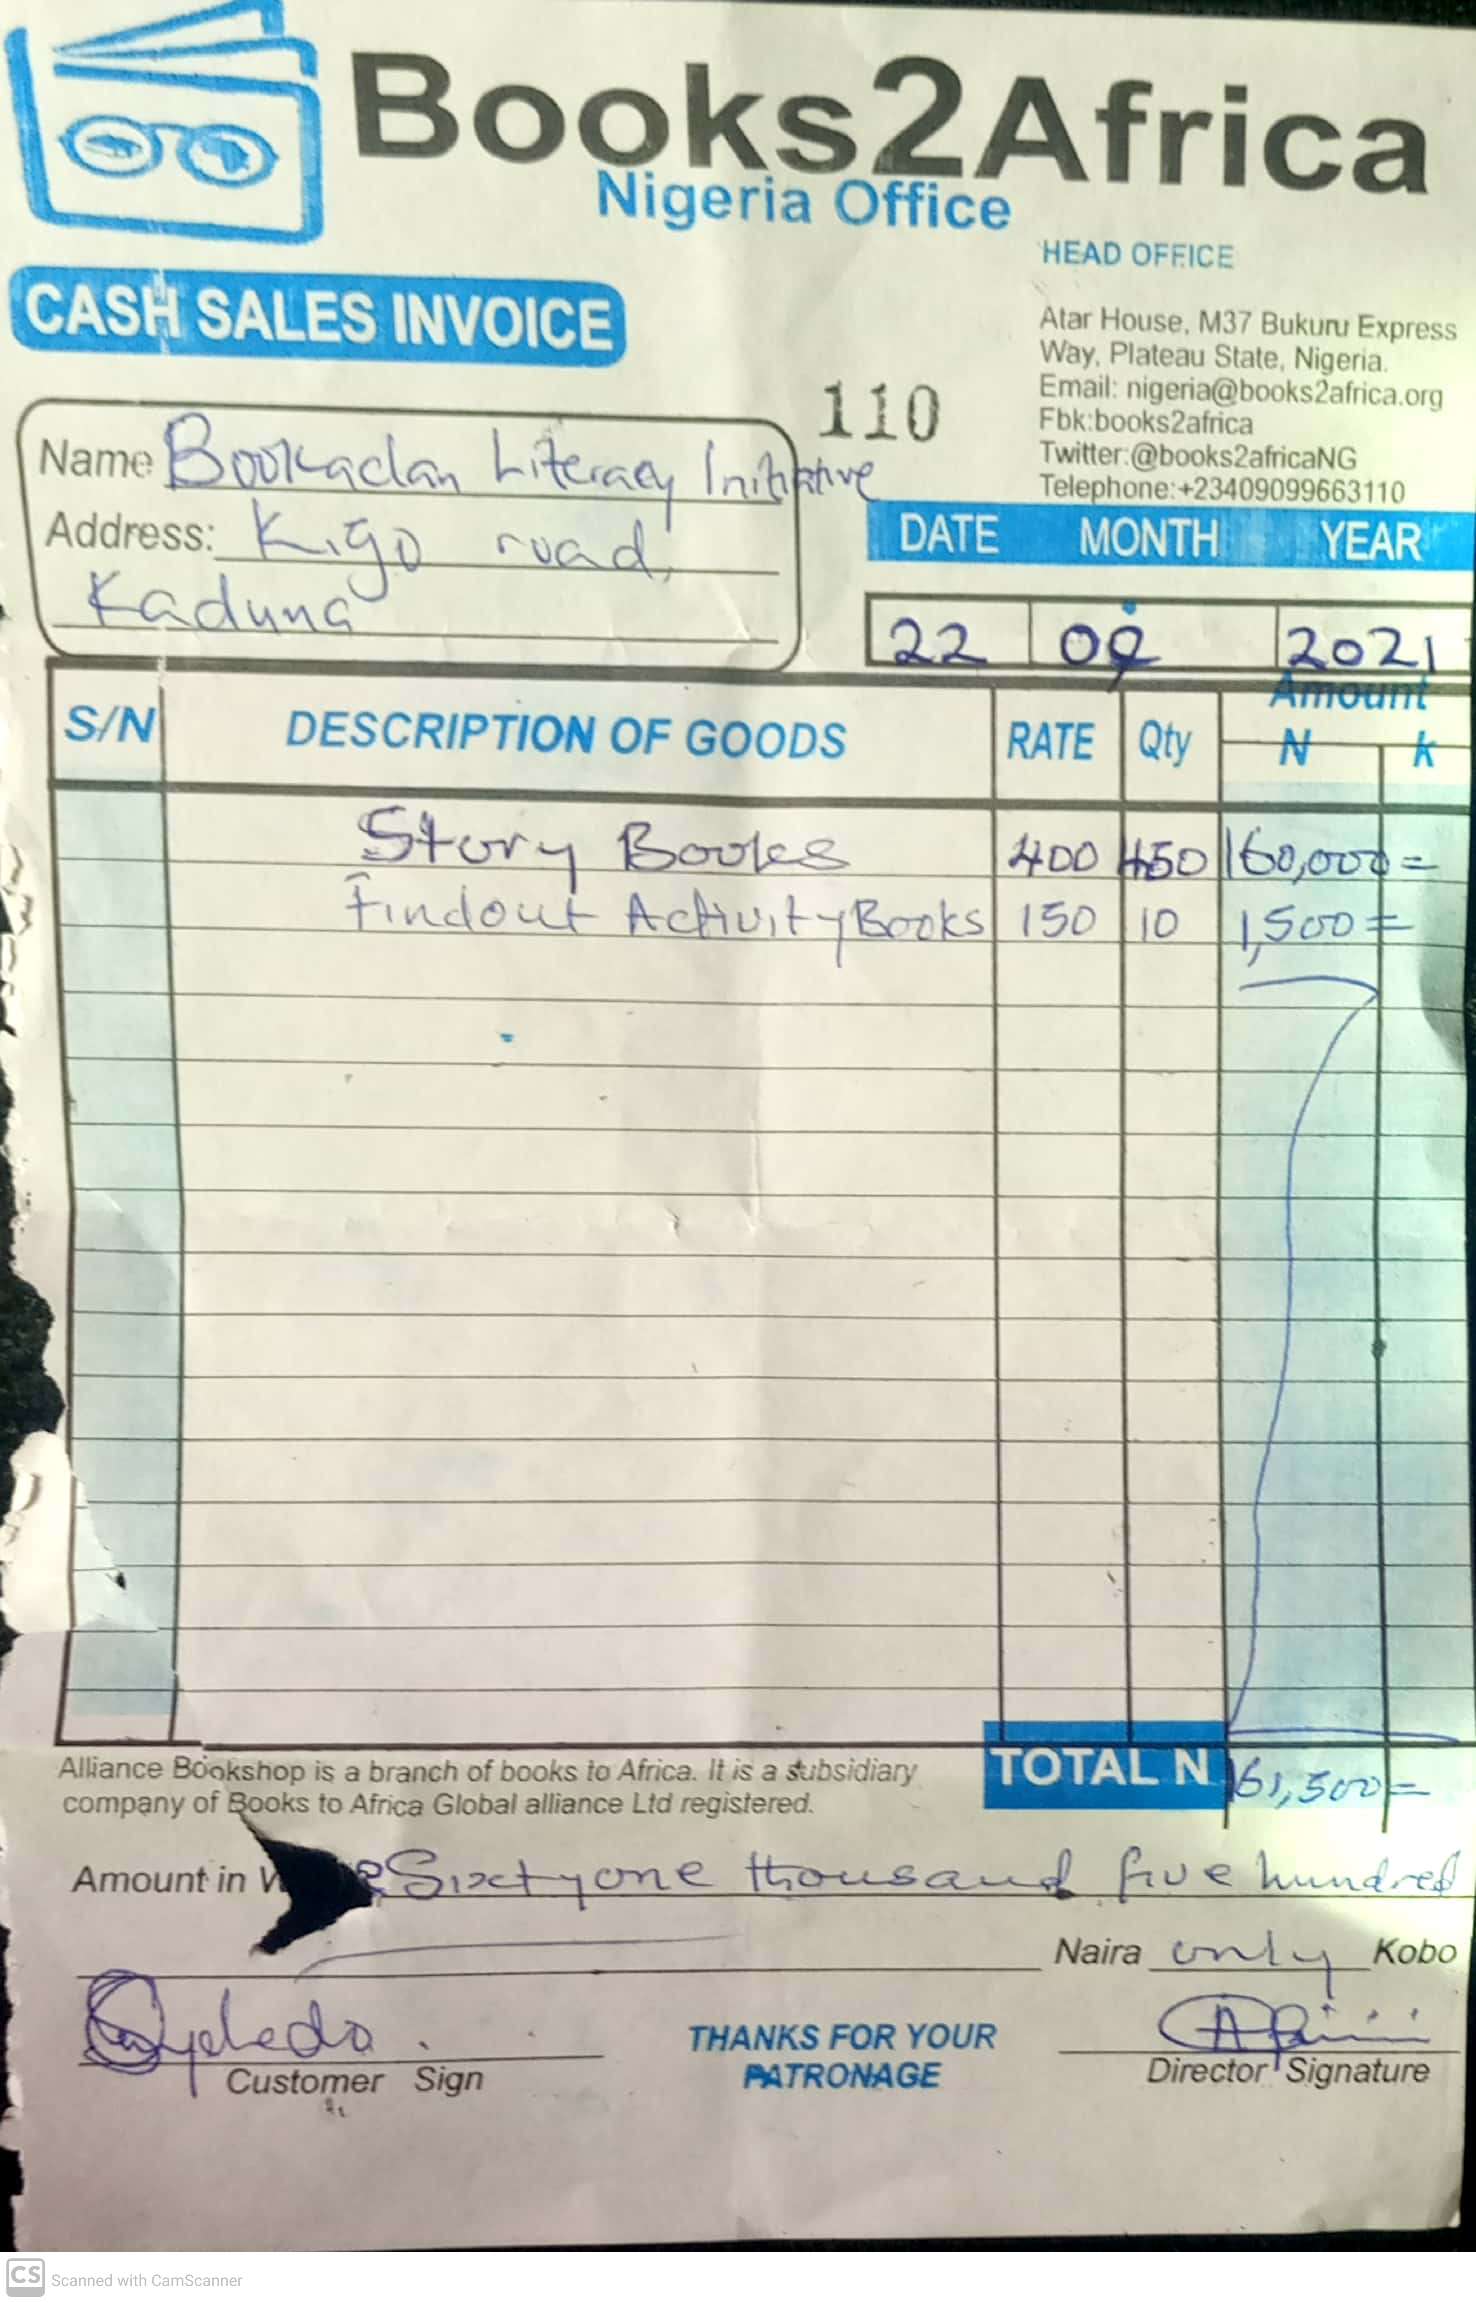 Books2Africa
Nigeria Office
HEAD OFFICE
CASH SALES INVOICE
Atar House, M37 Bukuru Express
Way, Plateau State, Nigeria.
Email: nigeria@books2africa.org
Fbk:books2africa
Twitter:@books2africaNG
Telephone:+23409099663110
110
Name Bookadan Literacy Initiative
Address: Kigo road,
Kaduna
DATE MONTH YEAR
22 09 2021
S/N DESCRIPTION OF GOODS RATE Qty Amount N k
Story Books 400 150 60,000=
Findout Activity Books 150 10 1,500=
TOTAL N 61,500=
Alliance Bookshop is a branch of books to Africa. It is a subsidiary
company of Books to Africa Global alliance Ltd registered.
Amount in Sixty one thousand five hundred
Naira only Kobo
Customer Sign
THANKS FOR YOUR
PATRONAGE
Director Signature
CS Scanned with CamScanner